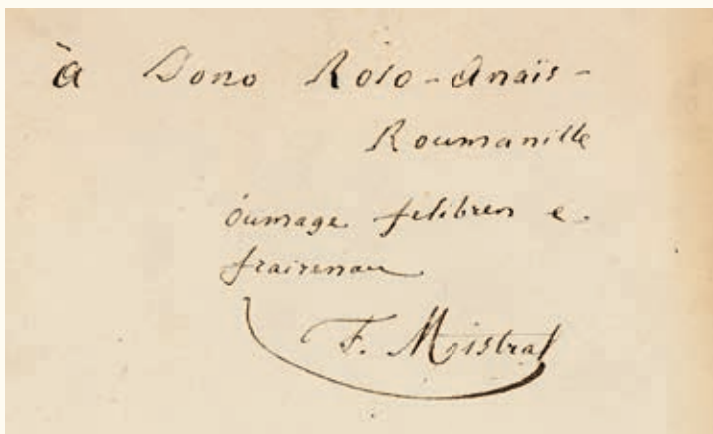 à Dono Roso-Anaïs-
Roumanille
óumage felibren e
frairenau
F. Mistral